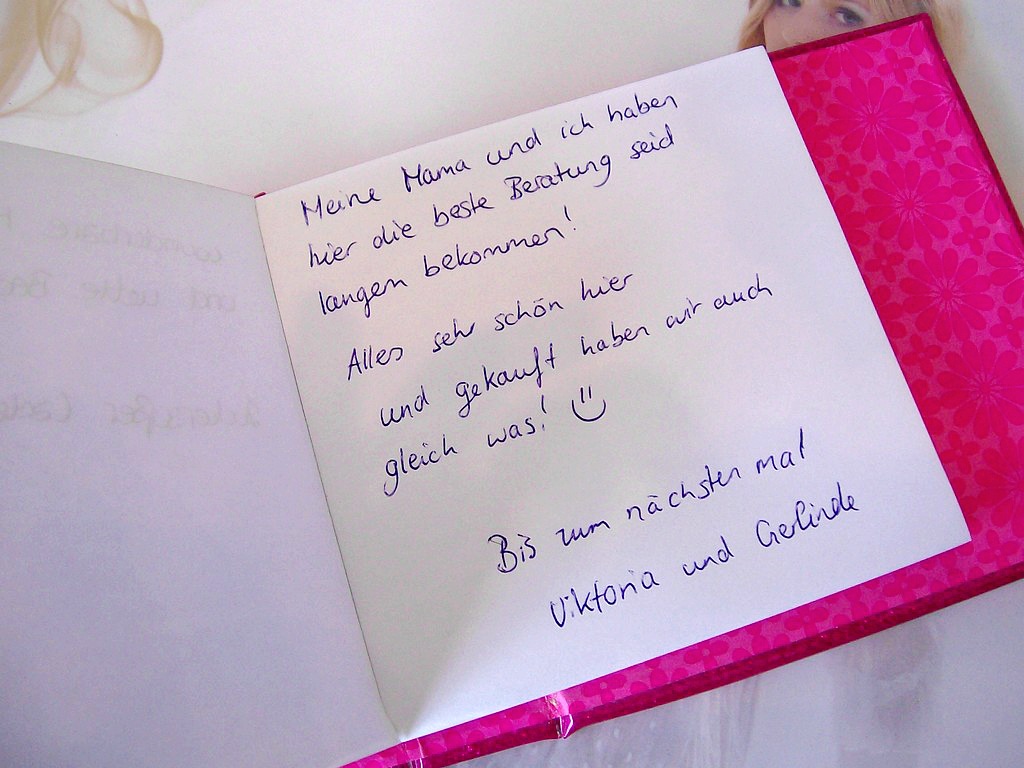 Meine Mama und ich haben
hier die beste Beratung seid
langem bekommen!
Alles sehr schön hier
und gekauft haben wir auch
gleich was! 
Bis zum nächsten mal
Viktoria und Gerlinde